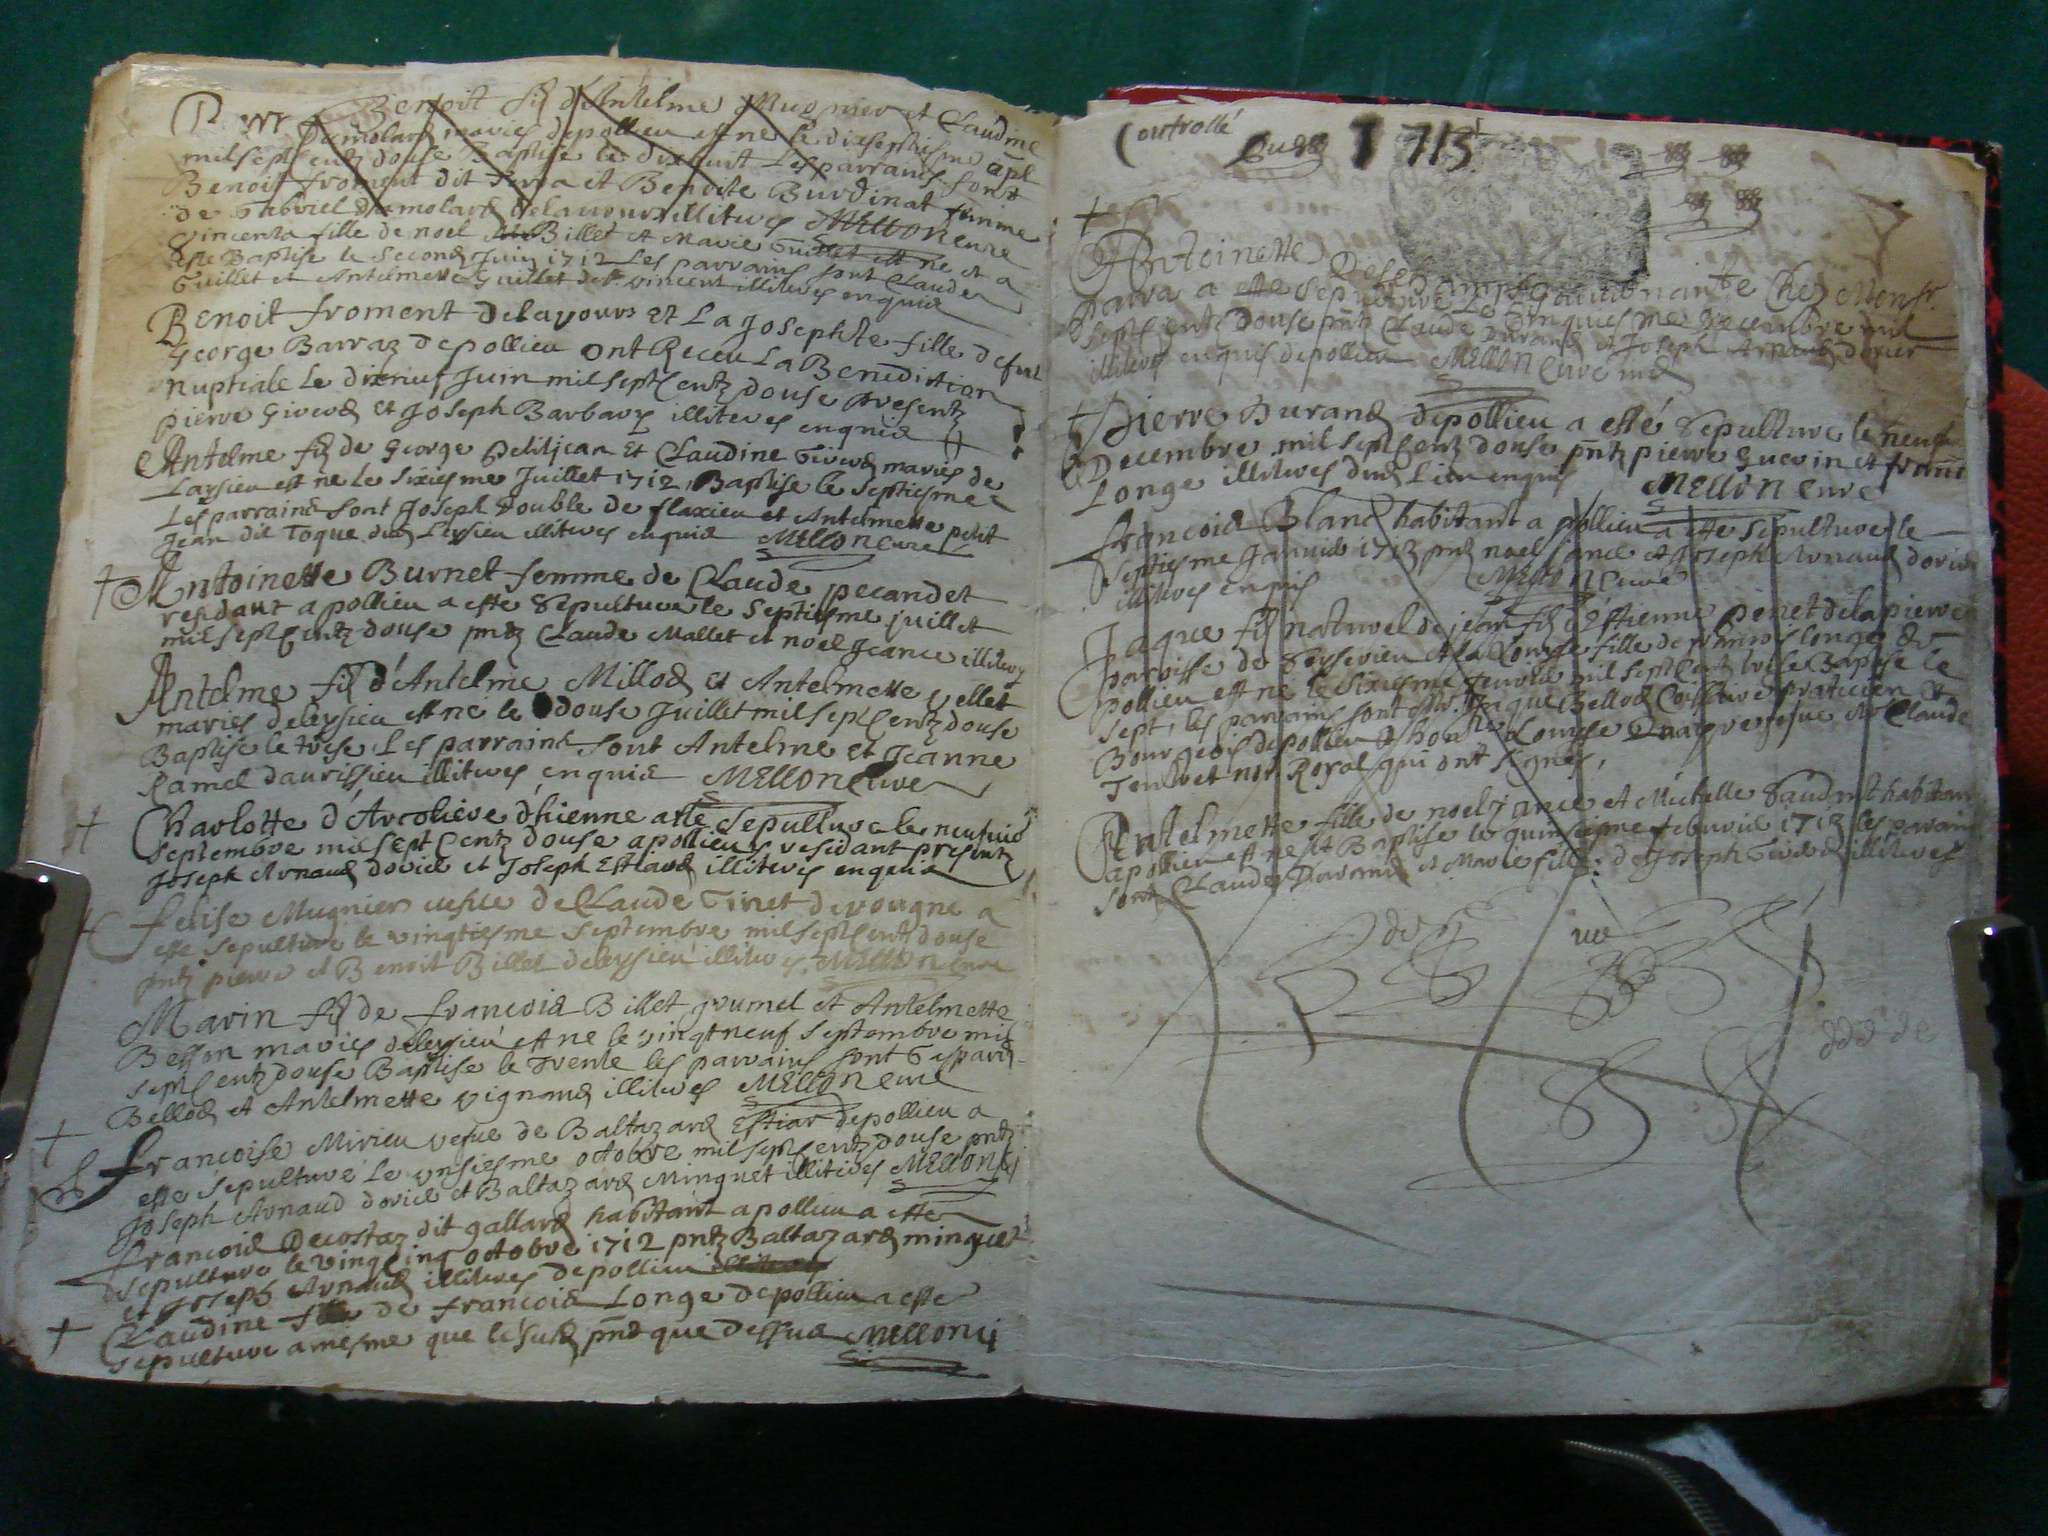 Benoit fis d'Antelme Mugnier et Claudine
Demolard maries depollieu est ne le dixseptiesme apl
milsept Centz douse Baptise le dixhuit Les parrains sont
Benoit froment dit et Benoite Burdinat femme
de Gabriel demolard delavours illiteres MELLON cure
vincenta fille de noel Billet et Marie Guillet est ne et a
este Baptise le Second Juin 1712 Les parrains sont Claude
Guillet et Antelmette Guillet de st vincent illiteres enquis
Benoit froment delavours et La Josephte fille de feu
George Barraz depollieu ont Receu La Benediction
nuptiale le dixneuf Juin milsept Centz douse presentz
pierre Giverd et Joseph Barbary illiteres enquis
Antelme fis de George petitjean et Claudine Giverd maries de
Laysieu est ne le sixiesme Juillet 1712, Baptise le septiesme
Les parrains sont Joseph Double de flaxieu et Antelmette petit
Jean dit Toque dud Leysieu illiteres enquis MELLON cure
Antoinette Burnet femme de Claude pecandet
residant a pollieu a este Sepulture le septiesme juillet
milsept Centz douse pntz Claude Mallet et noel Jeance illiteres
Antelme fis d'Antelme Millod et Antelmette vellet
maries deleysieu est ne le douse Juillet milsept Centz douse
Baptise le trese Les parrains sont Antelme et Jeanne
Ramel daurissieu illiteres enquis MELLON cure
Charlotte d'Arcolieve d'hienne a este Sepulture le neufvie
septembre mil sept Centz douse a pollieu y residant presentz
Joseph Arnaud dovier et Joseph Estiard illiteres enquis
felise Mugnier vefue de Claude Tinet de vougne a
este sepulture le vingtiesme septembre milsept Centz douse
pntz pierre et Benoit Billet deleysieu illiteres MELLON cure
Marin fis de francois Billet grumel et Antelmette
Besson maries deleysieu est ne le vingtneuf septembre mil
sept Centz douse Baptise le trente les parrains sont Gaspard
Bellod et Antelmette vignaud illiteres MELLON cure
francoise Mirieu vefue de Baltazard Estiar depollieu a
este sepulture le unsiesme octobre milsept Centz douse pntz
Joseph Arnaud dovier et Baltazard Minguet illiteres MELLON
francois Decostaz dit gallard habitant a pollieu a este
sepulture le vingcinq octobre 1712 pntz Baltazard minguet
et Joseph Arnaud illiteres depollieu illiteres
Claudine fille de francois Longe depollieu a este
sepulture a mesme que le susd pnt que dessus MELLON
Controllé 1713
Antoinette Deschamps
parra a este sepulture Le Chez Monsr
sept Centz douse pntz Claude durand et Joseph Arnaud dovier
illiteres enquis depollieu MELLON Cure
Pierre Durand depollieu a esté Sepulture le neuf
Decembre mil sept Centz douse pntz pierre guerin et
Longe illiteres dud Lieu enquis MELLON Cure
francois Blanc habitant a pollieu a este sepulture le
septiesme Janvier 1713 pnt noel Jance et Joseph Arnaud dovier
illiteres enquis MELLON Cure
Jaque fis naturel de jean fis d'Estienne penet delapierre
parroisse de et La Louyse fille de francois longe de
pollieu est ne le sixiesme Janvier mil sept Centz trese Baptise le
sept, les parrains sont Mr. Jaque Bellod praticien
Bourgeois depollieu Louyse vefue Mr Claude
not. Royal qui ont signes,
Antelmette fille de noel jance et Michelle habitant
a pollieu est ne et Baptise le quinsiesme feburier 1713 les parains
sont Claude Durand et Marie fille de Joseph Giverd illiteres